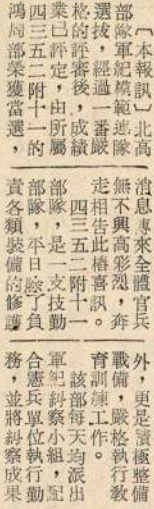 〔本報訊〕北高
部隊軍紀模範連隊
選拔，經過一番嚴
格的評審後，成績
業已評定，由所屬
四三五二附十一的
鴻周部榮獲當選，
消息傳來全體官兵
無不興高彩烈，奔
走相告此樁喜訊。
四三五二附十一
部隊，是一支技勤
部隊，平日除了負
責各類裝備的修護
外，更是積極整備
戰備，嚴格執行教
育訓練工作。
該部每天均派出
軍紀糾察小組，配
合憲兵單位執行勤
務，並將糾察成果